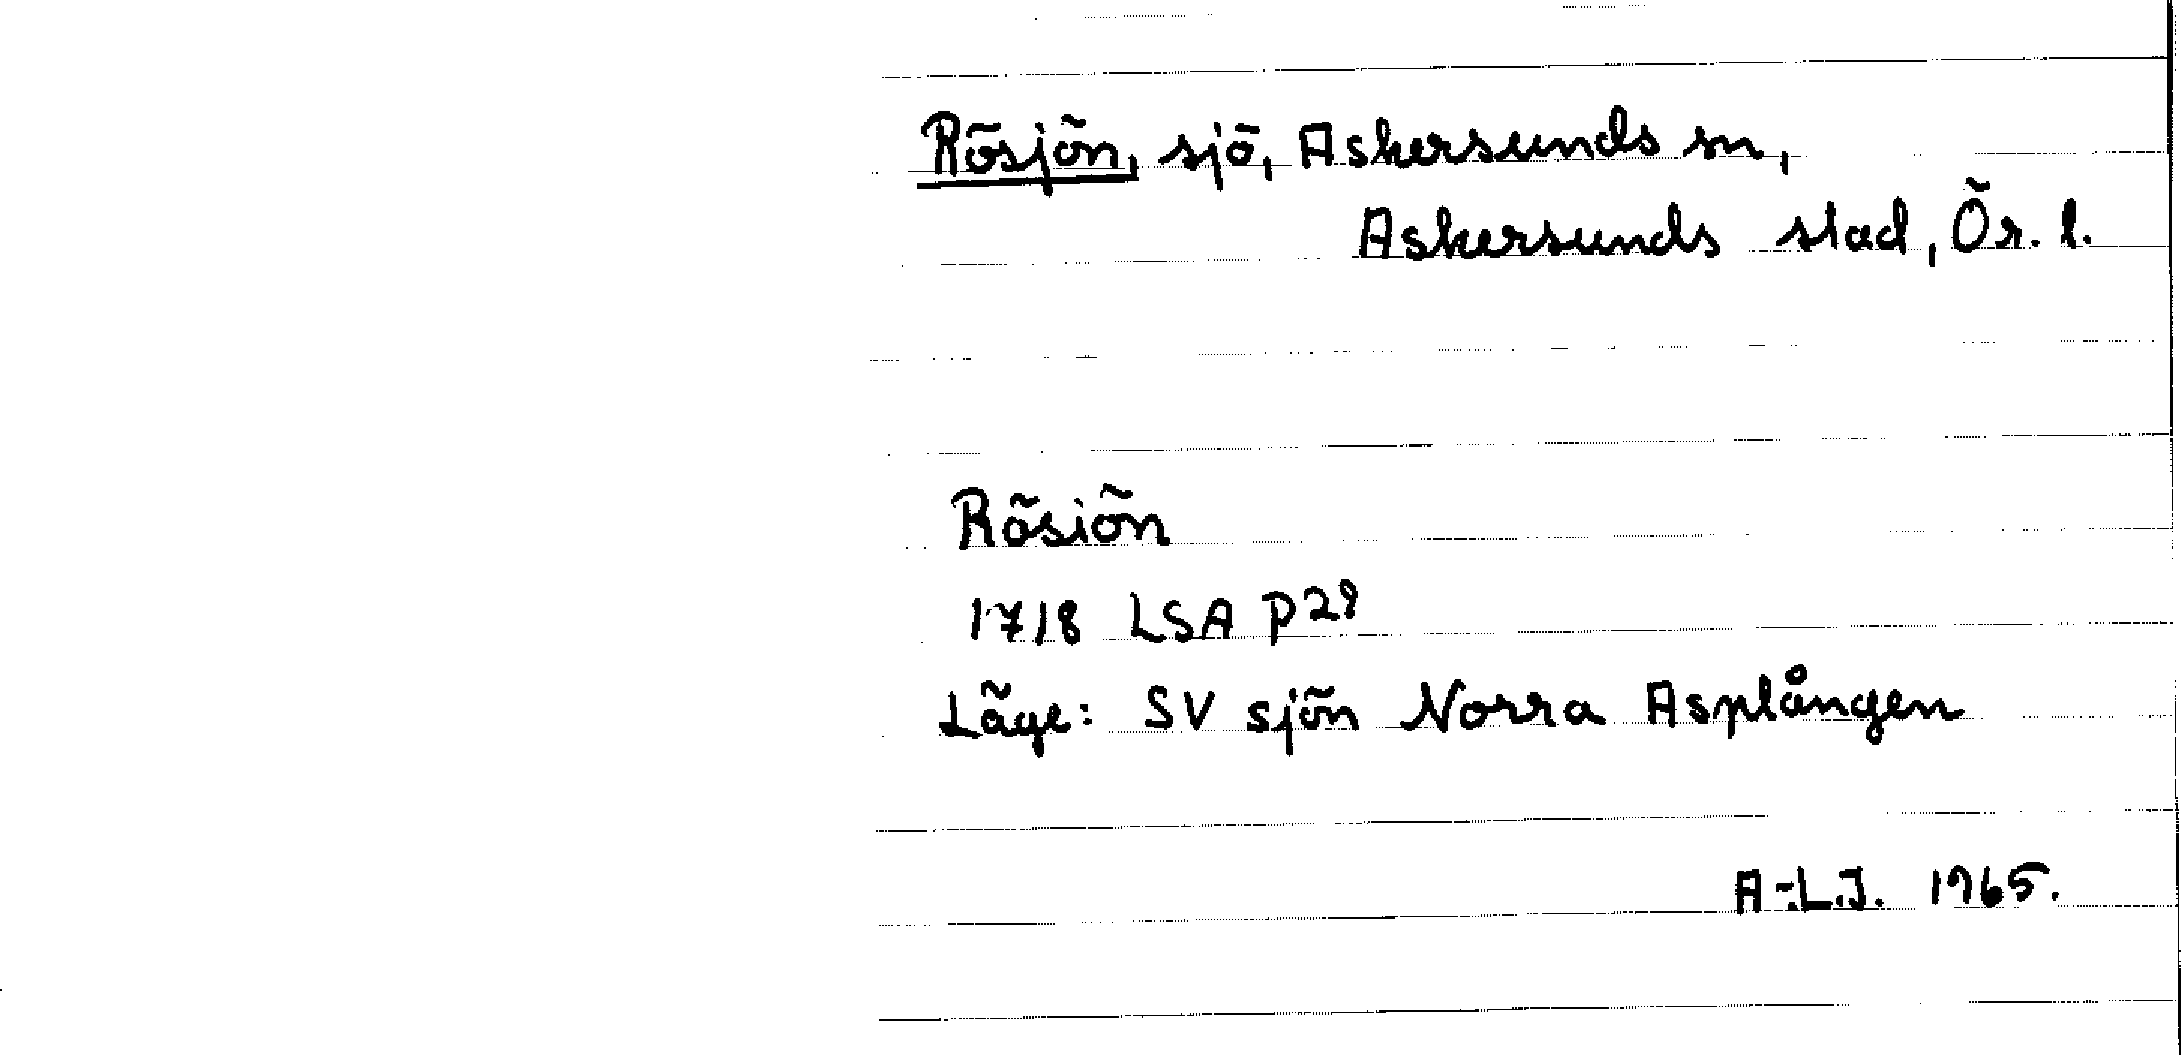 Rösjön, sjö, Askersunds sn,
Askersunds stad, Ör. l.
Rösiön
1718 LSA P29
Läge: SV sjön Norra Asplången
A-L.J. 1965.